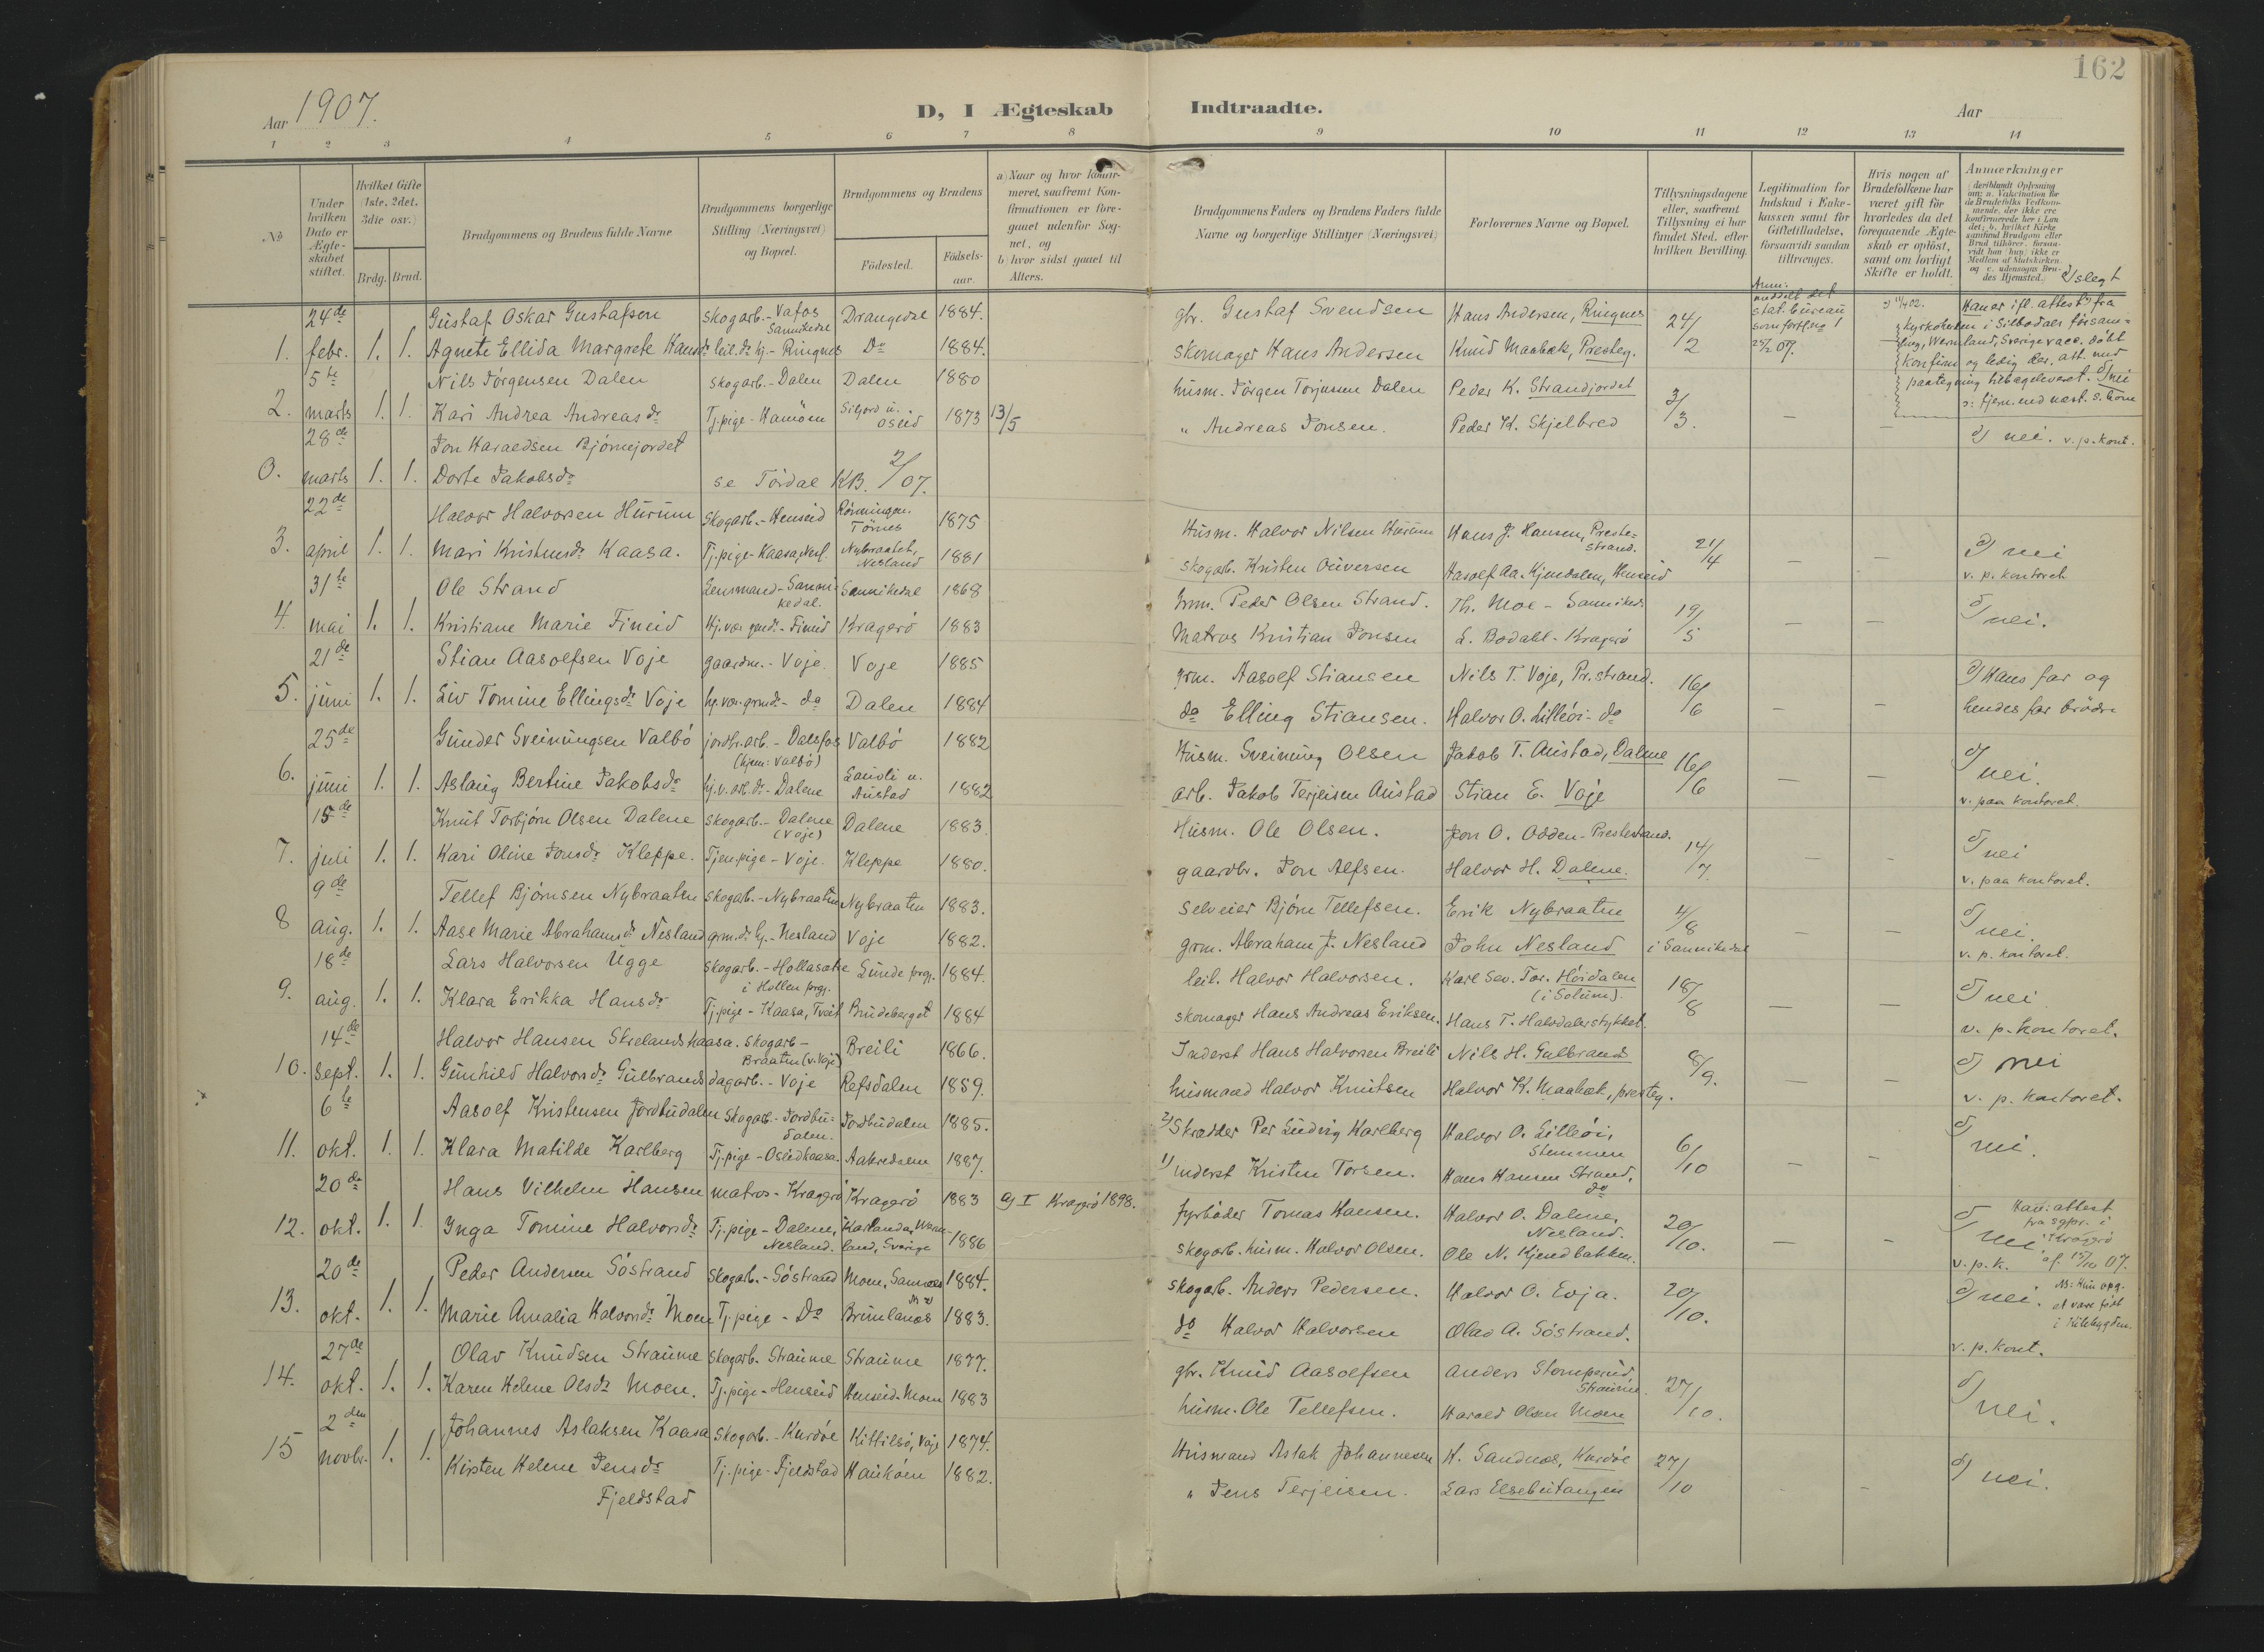 162
Aar 1907.
D, I Ægteskab Indtraadte.
Aar
1 2 3 4 5 6 7 8 9 10 11 12 13 14
No
Under hvilken Dato er Ægteskabet stiftet.
Hvilket Gifte (1ste, 2det, 3die osv.)
Brdg. Brud.
Brudgommens og Brudens fulde Navne
Brudgommens borgerlige Stilling (Næringsvei) og Bopæl.
Brudgommens og Brudens
Fødested.
Fødselsaar.
a) Naar og hvor konfirmeret, saafremt Konfirmationen er foregaaet udenfor Sognet, og
b) hvor sidst gaaet til Alters.
Brudgommens Faders og Brudens Faders fulde Navne og borgerlige Stillinger (Næringsvei)
Forlovernes Navne og Bopæl.
Tillysningsdagene eller, saafremt Tillysning ei har fundet Sted, efter hvilken Bevilling.
Legitimation for Indskud i Enkekassen samt for Giftetilladelse, forsaavidt saadan tiltrænges.
Hvis nogen af Brudefolkene har været gift før hvorledes da det foregaaende Ægteskab er opløst, samt om lovligt Skifte er holdt.
Anmærkninger
24de Gustaf Oskar Gustafsen skogarb. - Vafos Sannikedal Drangedal 1884. gbr. Gustaf Svendsen Hans Andersen, Ringnes 24/2
1. febr. 1. 1. Agnete Ellida Margrete Hansdr leil. dr hj. - Ringnes Do 1884. Skomager Hans Andersen Knud Maabæk, Presteg.
5te Nils Jørgensen Dalen skogarb. - Dalen Dalen 1880 husm. Jörgen Torjussen Dalen Peder K. Strandjordet 3/3.
2. marts 1. 1. Kari Andrea Andreasdr Tj.pige - Hamöen Siljord u. Oseid 1873 13/5 " Andreas Jonsen. Peder K. Skjelbred — — d) nei. v. p. kont.
28de Jon Haraldsen Bjørnejordet
0. marts 1. 1. Dorte Jakobsdr se Tördal KB. 2/07.
22de Halvor Halvorsen Hurum Skogarb. - Henseid Rönningen. Törnes 1875 Husm. Halvor Nilsen Hurum Hans J. Hansen, Prestestrand. 21/4
3. april 1. 1. Mari Kristensdr Kaasa. Tj.pige - Kaasa, Nesl. Nybraatet, Nesland 1881 skogarb. Kristen Oliversen Aasolf Aa. Kjendalen, Henseid — — d) nei v. p. kontoret
31te Ole Strand Lensmand - Sannikedal. Sannikedal 1868 grm. Peder Olsen Strand. Th. Moe - Sanniked. 19/5
4. mai 1. 1. Kristiane Marie Fineid hj. vær. gmdr. - Fineid Kragerö 1883 Matros Kristian Jonsen L. Bodahl - Kragerö — — d) nei.
21de Stian Aasolfsen Voje gaardm. - Voje. Voje 1885 grm. Aasolf Stiansen Nils T. Voje, Pr.strand. 16/6 d) Hans far og
5. juni 1. 1. Liv Tomine Ellingsdr Voje hj.vær.grmdr - do Dalen 1884 do Elling Stiansen. Halvor O. Lilleöi - do — — hendes far brödre
25de Gunder Sveinungsen Valbö jordbr.arb. - Dalsfos (hjem: Valbö) Valbö 1882 Husm. Sveinung Olsen Jakob T. Austad, Dalene 16/6
6. juni 1. 1. Aslaug Bertine Jakobsdr hj. v. arb. dr - Dalene Lauvli u. Austad 1882 arb. Jakob Terjeisen Austad Stian E. Voje — — d) nei. v. paa kontoret.
15de Knut Torbjørn Olsen Dalene skogarb. - Dalene (Voje) Dalene 1883. Husm. Ole Olsen. Jon O. Odden - Prestestrand. 14/7
7. juli 1. 1. Kari Oline Jonsdr Kleppe. Tjen.pige - Voje. Kleppe 1880. gaardbr. Jon Alfsen. Halvor H. Dalene. — — d) nei v. paa kontoret.
9de Tellef Bjørnsen Nybraaten skogarb. - Nybraaten Nybraaten 1883. Selveier Bjørn Tellefsen. Erik Nybraaten 4/8
8 aug. 1. 1. Aase Marie Abrahamsdr Nesland grm.dr hj. - Nesland Voje 1882. grm. Abraham J. Nesland John Nesland i Sannikedal — — d) nei. v. p. kontoret.
18de Lars Halvorsen Ugge skogarb. - Hollasæte i Hollen prgj. Lunde prgj. 1884. leil. Halvor Halvorsen. Karl Sev. Tor. Höidalen (i Solum). 18/8
9. aug. 1. 1. Klara Erikka Hansdr Tj.pige - Kaasa, Tveit Brudeberget 1884 skomager Hans Andreas Eriksen. Hans T. Halvdalerstykket. — — d) nei v. p. kontoret.
14de Halvor Hansen Skrelandshaasa. skogarb - Braaten (v. Voje) Breili 1866. Inderst Hans Halvorsen Breili Nils H. Gulbrands 8/9.
10. sept. 1. 1. Gunhild Halvorsdr Gulbrands dagarb. - Voje Refsdalen 1859. husmand Halvor Knutsen Halvor K. Maabæk, presteg. — — d) nei v. p. kontoret.
6te Aasolf Kristensen Jordbudalen Skogarb. - Jordbudalen. Jordbudalen 1885. 2) Skrædder Per Ludvig Karlberg Halvor O. Lilleöi, Stemmen 6/10
11. okt. 1. 1. Klara Matilde Karlberg Tj.pige - Oseidkaasa. Aakredalene 1887. 1) Inderst Kristen Torsen. Hans Hansen Strand. do — — d) nei.
20de Hans Vilhelm Hansen matros - Kragerö Kragerö 1883 a) I Kragerö 1898. fyrböder Tomas Hansen. Halvor O. Dalene, Nesland. 20/10.
12. okt. 1. 1. Inga Tomine Halvorsdr Tj.pige - Dalene, Nesland. Karlanda, Wermland, Sverige 1886 skogarb. husm. Halvor Olsen. Ole N. Kjendbakken. — — d) nei v. p. k. Hans attest fra sgpr. i Kragerö af 15/10 07.
20de Peder Andersen Söstrand Skogarb. - Söstrand Moen, Sannikedal 1884. skogarb. Anders Pedersen. Halvor O. Evja. 20/10.
13. okt. 1. 1. Marie Amalia Halvorsdr Moen Tj.pige - Do Brunlanæs 1883. do Halvor Halvorsen Olav A. Söstrand. d) nei. NB: Hun opg. at være født i Kilebygden. v. p. kont.
27de Olav Knudsen Straume Skogarb. Straume Straume 1877. gbr. Knud Aasolfsen Anders Stomperud, Straume. 27/10.
14. okt. 1. 1. Karen Helene Olsdr Moen. Tj.pige - Henseid Henseid-Moen 1883 husm. Ole Tellefsen. Harald Olsen Moen d) nei.
2den Johannes Aslaksen Kaasa Skogarb. - Kurdöe Kittilsö, Voje 1874. Husmand Aslak Johannesen H. Sandnæs, Kurdöe 27/10
15 novbr. 1. 1. Kirsten Helene Jensdr Fjeldstad Tj.pige - Fjeldstad Haukøen 1882. " Jens Terjeisen. Lars Elsebutangen d) nei.